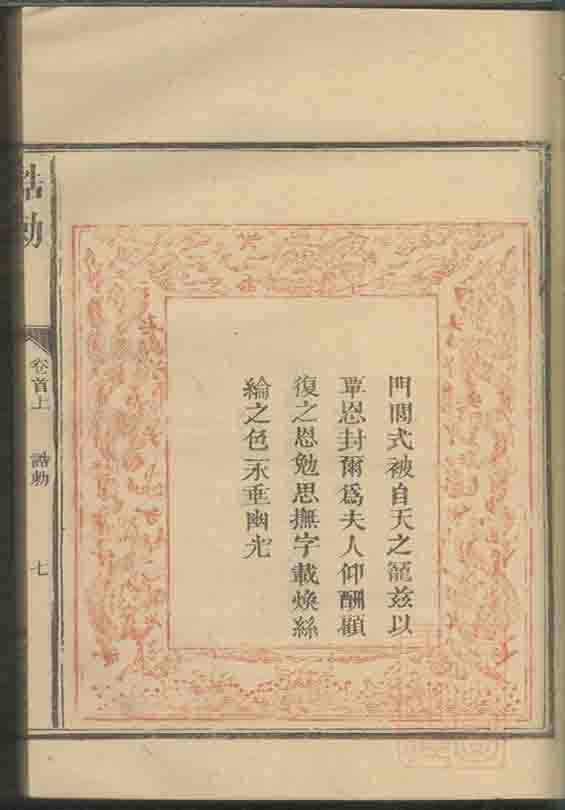 門閭式被自天之寵茲以
覃恩封爾爲夫人仰酬顧
復之恩勉思撫字載煥絲
綸之色永垂幽光
誥勅
卷首上 誥勅 七